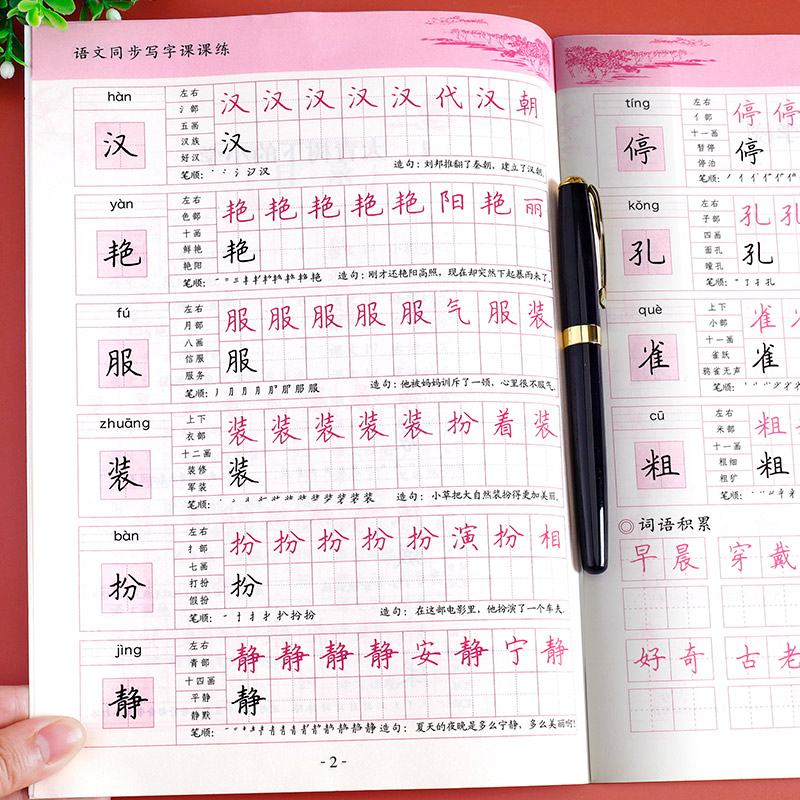 语文同步写字课课练
hàn
汉
左右
氵部
五画
汉族
好汉
汉汉汉汉汉代汉朝
汉
笔顺：
造句：刘邦推翻了秦朝，建立了汉朝。
yàn
艳
左右
色部
十画
鲜艳
艳阳
艳艳艳艳艳阳艳丽
艳
笔顺：
造句：刚才还艳阳高照，现在却突然下起暴雨来了。
fú
服
左右
月部
八画
信服
服务
服服服服服气服装
服
笔顺：
造句：他被妈妈训斥了一顿，心里很不服气。
zhuāng
装
上下
衣部
十二画
装修
军装
装装装装装扮着装
装
笔顺：
造句：小草把大自然装扮得更加美丽。
bàn
扮
左右
扌部
七画
打扮
假扮
扮扮扮扮扮演扮相
扮
笔顺：
造句：在这部电影里，他扮演了一个车夫。
jìng
静
左右
青部
十四画
平静
静默
静静静静安静宁静
静
笔顺：
造句：夏天的夜晚是多么宁静，多么美丽啊！
- 2 -
tíng
停
左右
亻部
十一画
暂停
停泊
停停
停
笔顺：
kǒng
孔
左右
子部
四画
面孔
瞳孔
孔孔
孔
笔顺：
què
雀
上下
小部
十一画
雀跃
鸦雀无声
雀雀
雀
笔顺：
cū
粗
左右
米部
十一画
粗细
粗犷
粗粗
粗
笔顺：
词语积累
早晨 穿戴
好奇 古老